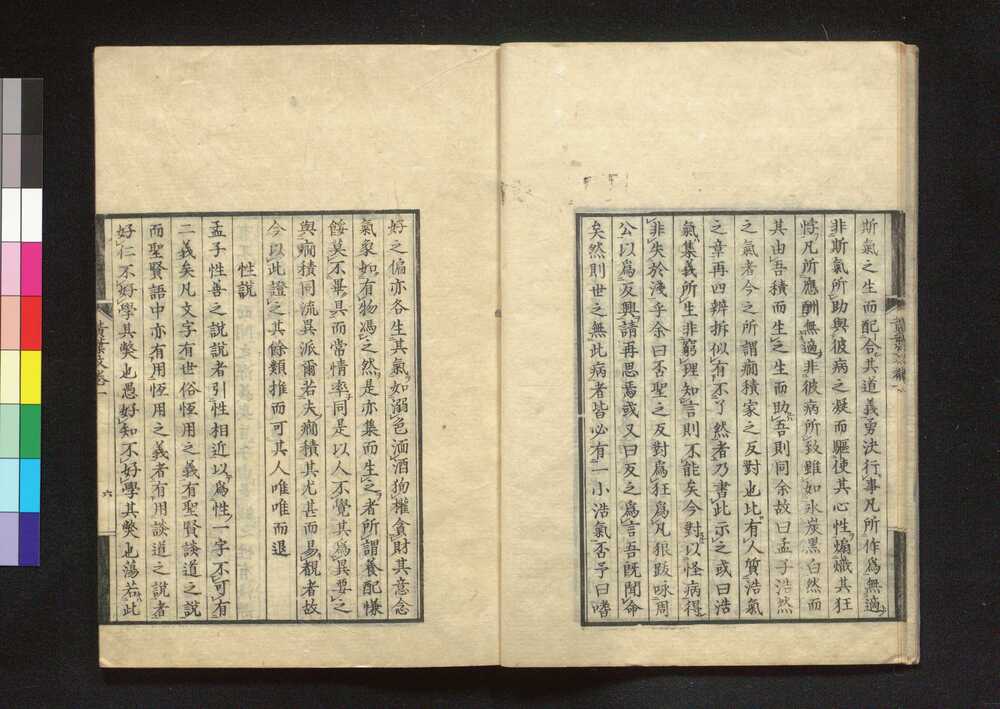 斯氣之生而配合其道義勇決行事凡所作爲無適
非斯氣所助與彼病之凝而驅使其心性煽熾其狂
悖凡所應酬無適非彼病所致雖如氷炭黑白然而
其由吾積而生之生而助吾則同余故曰孟子浩然
之氣者今之所謂癇積家之反對也比有人質浩氣
之章再四辨拆似有不了然者乃書此示之或曰浩
氣集義所生非窮理知言則不能矣今對以怪病得
非失於淺乎余曰否聖之反對爲狂爲凡狼跋咏周
公以爲反興請再思焉或又曰反之爲言吾既聞命
矣然則世之無此病者皆必有一小浩氣否予曰嗜
好之偏亦各生其氣如溺色湎酒狥權貪財其意念
氣象如有物馮之然是亦集而生之者所謂養配慊
餒莫不畢具而常情率同是以人不覺其爲異要之
與癇積同流異派爾若夫癇積其尤甚而易覩者故
今以此證之其餘類推而可其人唯唯而退
性説
孟子性善之説説者引性相近以爲性一字不可有
二義矣凡文字有世俗恆用之義有聖賢談道之説
而聖賢語中亦有用恆用之義者有用談道之説者
好仁不好學其獘也愚好知不好學其獘也蕩若此
黄葉文卷一
六